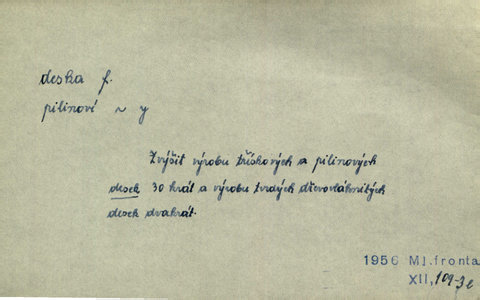 deska f.
pilinové ~ y
Zvýšit výrobu třískových a pilinových
desek 30 krát a výrobu tvrdých dřevovláknitých
desek dvakrát.
1956 Ml.fronta
XII, 109-3c